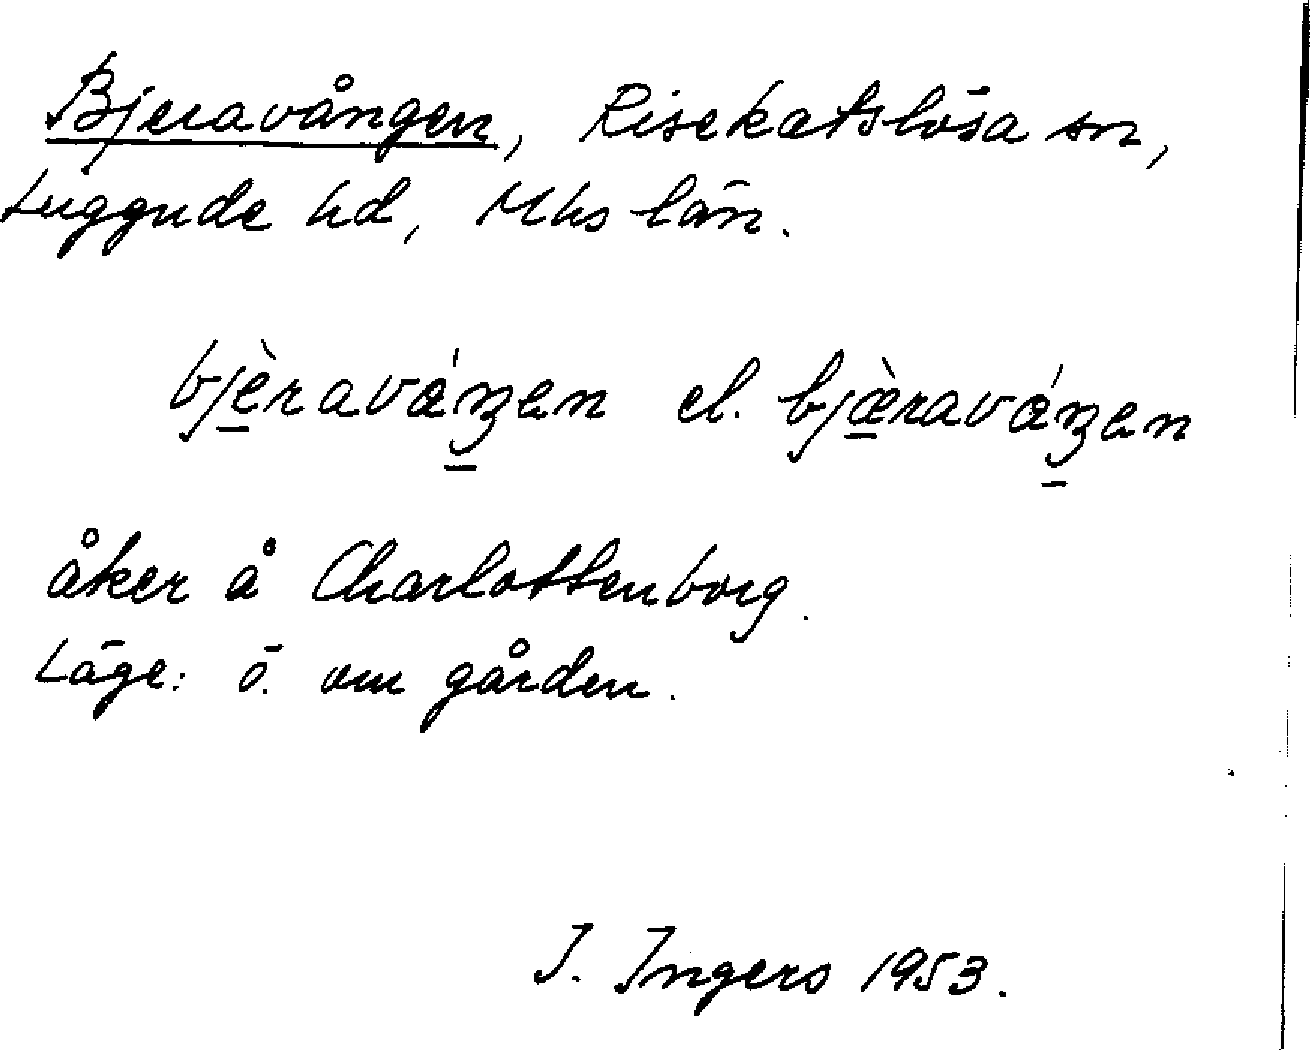 Bjeravången, Risekatslösa sn,
Luggude hd, Mhs län.
bjèraváŋen el. bjæ̀raváŋen
åker å Charlottenborg.
Läge: ö. om gården.
I. Ingers 1953.